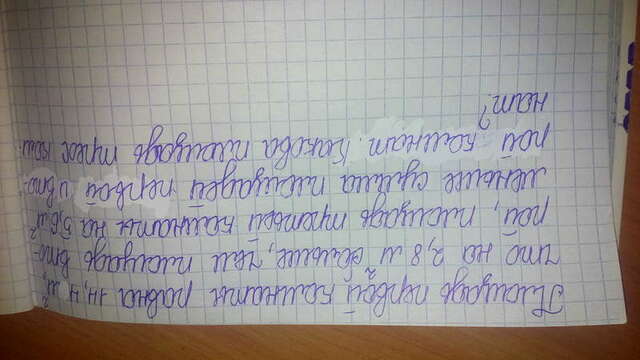 Площадь первой комнаты равна 14,4 м²,
что на 2,8 м² больше, чем площадь вто-
рой, площадь третьей комнаты на 5,6 м²
меньше сумма площадей первой и вто-
рой комнат. Какова площадь трех ком-
нат?